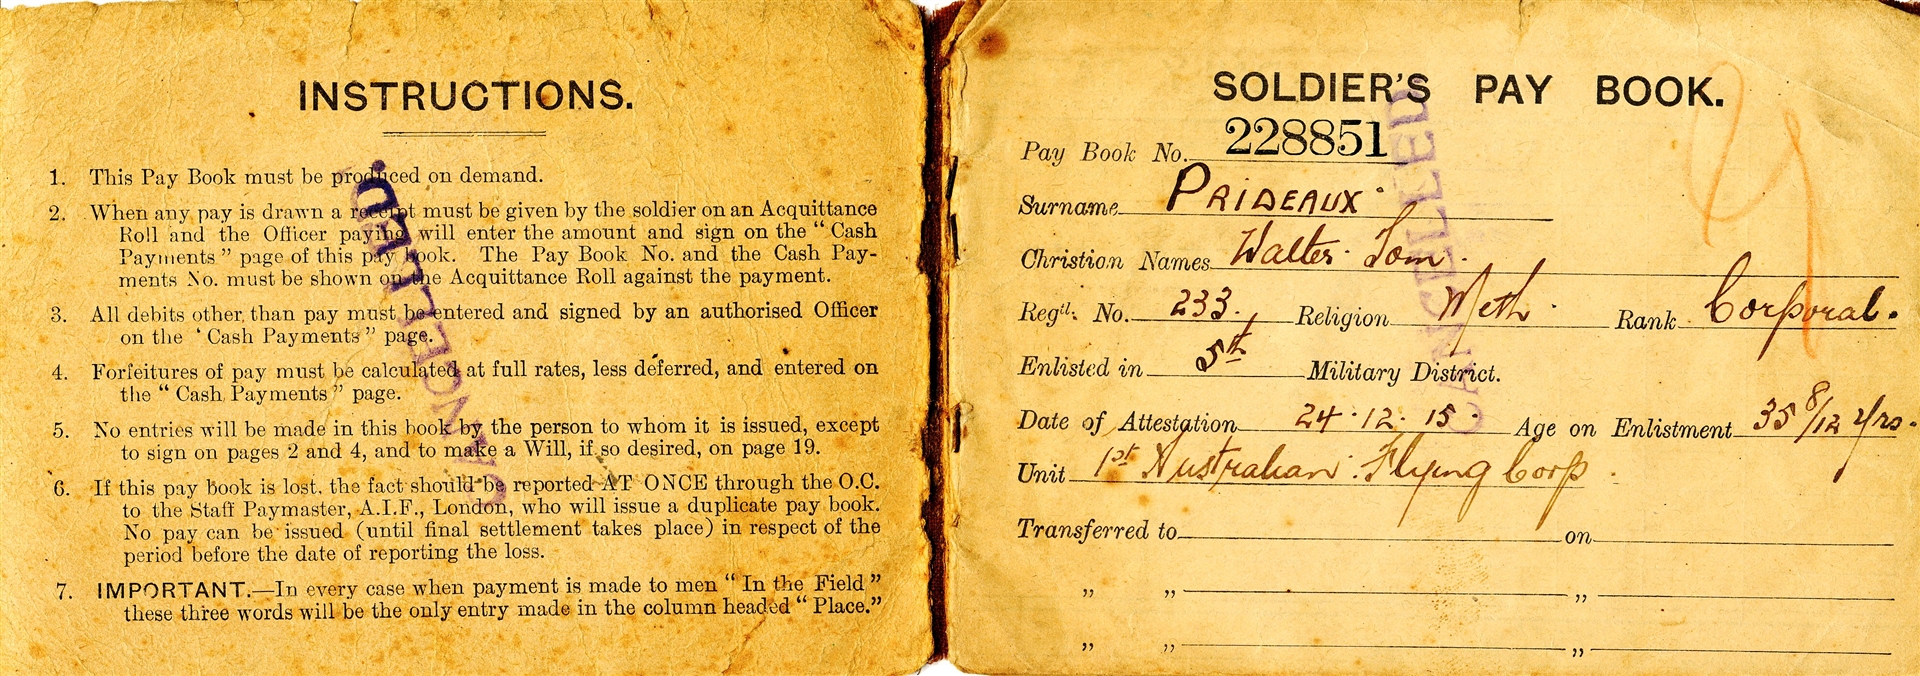 INSTRUCTIONS.
1. This Pay Book must be produced on demand.
2. When any pay is drawn a receipt must be given by the soldier on an Acquittance
Roll and the Officer paying will enter the amount and sign on the "Cash
Payments" page of this pay book. The Pay Book No. and the Cash Pay-
ments No. must be shown on the Acquittance Roll against the payment.
3. All debits other than pay must be entered and signed by an authorised Officer
on the 'Cash Payments" page.
4. Forfeitures of pay must be calculated at full rates, less deferred, and entered on
the "Cash Payments" page.
5. No entries will be made in this book by the person to whom it is issued, except
to sign on pages 2 and 4, and to make a Will, if so desired, on page 19.
6. If this pay book is lost, the fact should be reported AT ONCE through the O.C.
to the Staff Paymaster, A.I.F., London, who will issue a duplicate pay book.
No pay can be issued (until final settlement takes place) in respect of the
period before the date of reporting the loss.
7. IMPORTANT.—In every case when payment is made to men "In the Field"
these three words will be the only entry made in the column headed "Place."
CANCELLED.
SOLDIER'S PAY BOOK.
Pay Book No. 228851
Surname PRIDEAUX
Christian Names Walter Tom.
Regtl. No. 233. Religion Meth. Rank Corporal.
Enlisted in 5th Military District.
Date of Attestation 24.12.15. Age on Enlistment 35 8/12 yrs.
Unit 1st Australian Flying Corp.
Transferred to on
" " "
" " "
CANCELLED